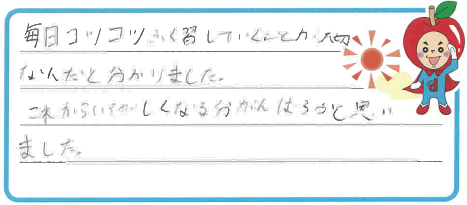 毎日コツコツふく習していくことが大切
なんだと分かりました。
これからいそがしくなる分がんばろうと思い
ました。